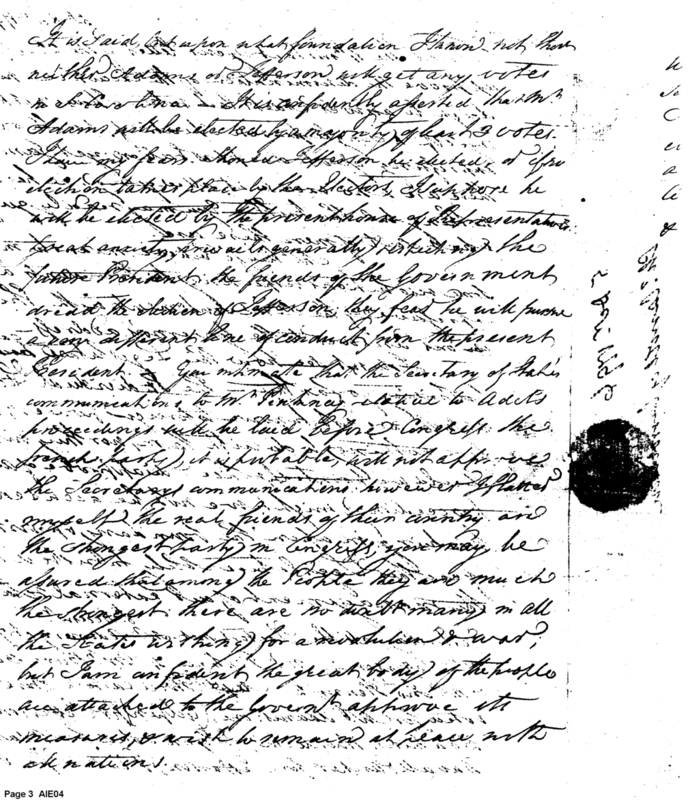 It is said, but upon what foundation I know not that
neither Adams or Jefferson will get any votes
in Carolina — It is confidently asserted that Mr
Adams will be elected by a majority of least 3 votes.
I have my fears should Jefferson be elected, or if no
election takes place by the Electors, I suppose he
will be elected by the present house of Representatives
Great anxiety prevails generally respecting the
future President the friends of the Government
dread the election of Jefferson, they fear he will pursue
a very different line of conduct from the present
President — You intimate that the Secretary of State's
communications to Mr Pinkney relative to Adets
proceedings will be laid before Congress the
french party, it is probable, will not approve
the Secretarys communications, however I flatter
myself the real friends of their country are
the strongest party in Congress, you may be
assured that among the People they are much
the strongest there are no doubt many in all
the States wishing for a revolution & war,
but I am confident the great body of the people
are attached to the Governt approve its
measures, & wish to remain at peace with
all nations.
Page 3 AIE04